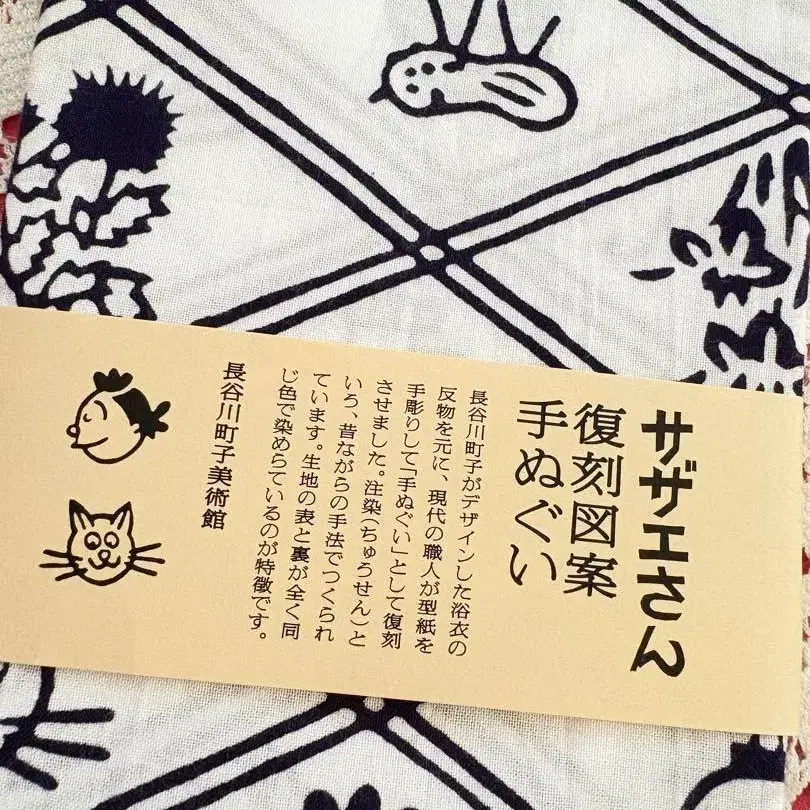 サザエさん
復刻図案
手ぬぐい
長谷川町子がデザインした浴衣の
反物を元に、現代の職人が型紙を
手彫りして「手ぬぐい」として復刻
させました。注染(ちゅうせん)と
いろ、昔ながらの手法でつくられ
ています。生地の表と裏が全く同
じ色で染めらているのが特徴です。
長谷川町子美術館